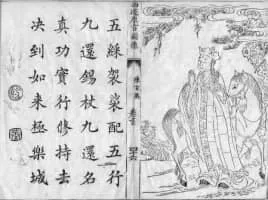 五綵袈裟配五行
九還錫杖九還名
真功實行修持去
決到如來極樂城